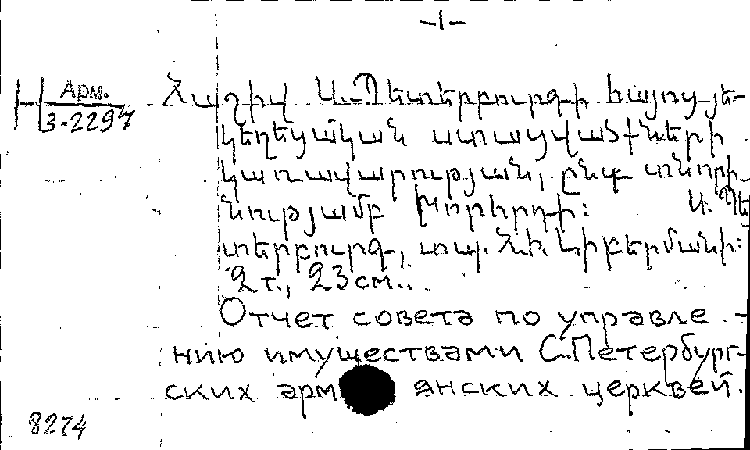 -1-
Арм. Հաշիվ Ս.-Պետերբուրգի հայոց եկե-
3-2297
կեղեցական ստացվածների
կառավարության, ընդ տնօրի-
նությամբ խորհրդի: Ս. Պե
տերբուրգ, տպ. Ն.Ի. Լիբերմանի:
2 т., 23 см..
Отчет совета по управле-
нию имуществами С.Петербург-
ских армянских церквей.
8274